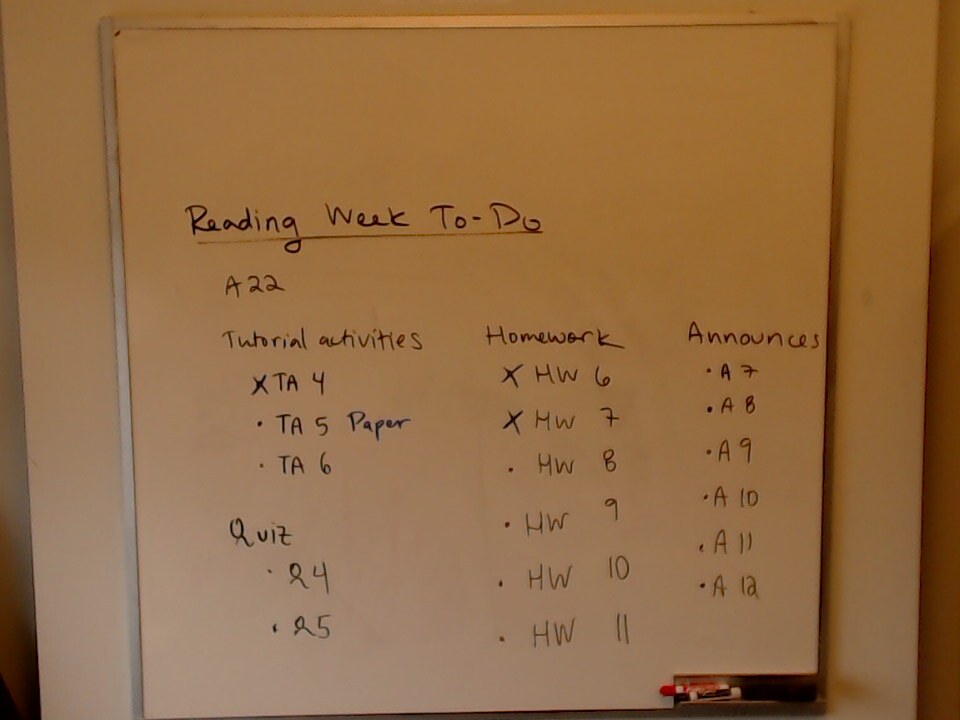 Reading Week To-Do
A22
Tutorial activities
X TA 4
• TA 5 Paper
• TA 6
Quiz
• Q4
• Q5
Homework
X HW 6
X HW 7
• HW 8
• HW 9
• HW 10
• HW 11
Announces
• A 7
• A 8
• A 9
• A 10
• A 11
• A 12